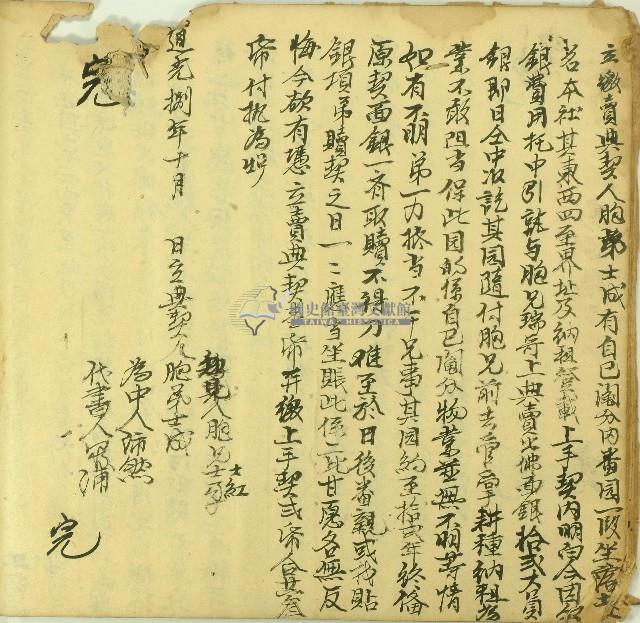 立繳賣典契人胞弟士成有自己鬮分內番园一段坐落土
名本社其東西四至界址及納租登載上手契內明白今因欠
銀費用托中引就与胞兄瑞哥上典賣出佛面銀拾弍大員
銀即日仝中收訖其园隨付胞兄前去管掌耕種納租為
業不敢阻当保此园的係自己鬮分物業並無不明等情
如有不明弟一力抵当不干兄事其园約至拾弍年終備
原契面銀一齊取贖不得刁难至於日後番親或找貼
銀項弟贖契之日一二應当坐賬此係二比甘愿各無反
悔今欲有憑立賣典契一帋并繳上手契弍帋合共叁
帋付执為炤
道光捌年十月 日立典契人胞弟士成
知見人胞兄士紅
為中人
代書人
完
完
臺灣文獻館
TAIWAN HISTORICA